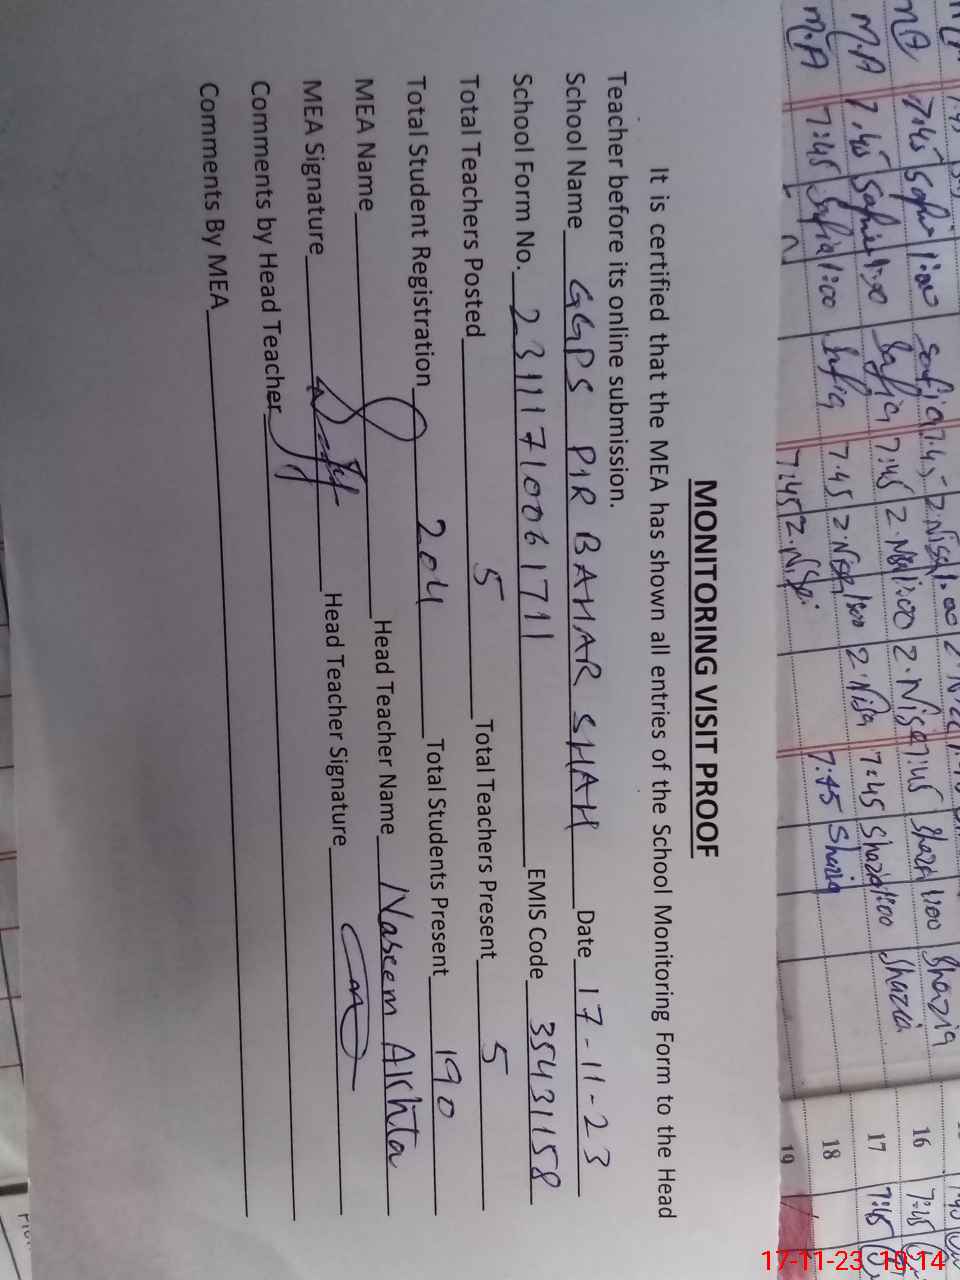 MONITORING VISIT PROOF
It is certified that the MEA has shown all entries of the School Monitoring Form to the Head
Teacher before its online submission.
School Name GGPS PIR BAHAR SHAH Date 17-11-23
School Form No. 23111710061711 EMIS Code 35431158
Total Teachers Posted 5 Total Teachers Present 5
Total Student Registration 204 Total Students Present 190
MEA Name Head Teacher Name Naseem Akhta
MEA Signature Head Teacher Signature
Comments by Head Teacher
Comments By MEA
M.A 7:45 Safia 1:00 Safia 7:45 Z.Nisa 1:00 Z.Nisa 7:45 Shazia 1:00 Shazia
M.A 7:45 Safia 1:00 Safia 7:45 Z.Nisa 1:00 Z.Nisa 7:45 Shazia 1:00 Shazia
M.A 7:45 Safia 1:00 Safia 7:45 Z.Nisa 7:45 Shazia
7:45 Z.Nisa
16 7:45
17 7:45
18
19
17-11-23 10:14